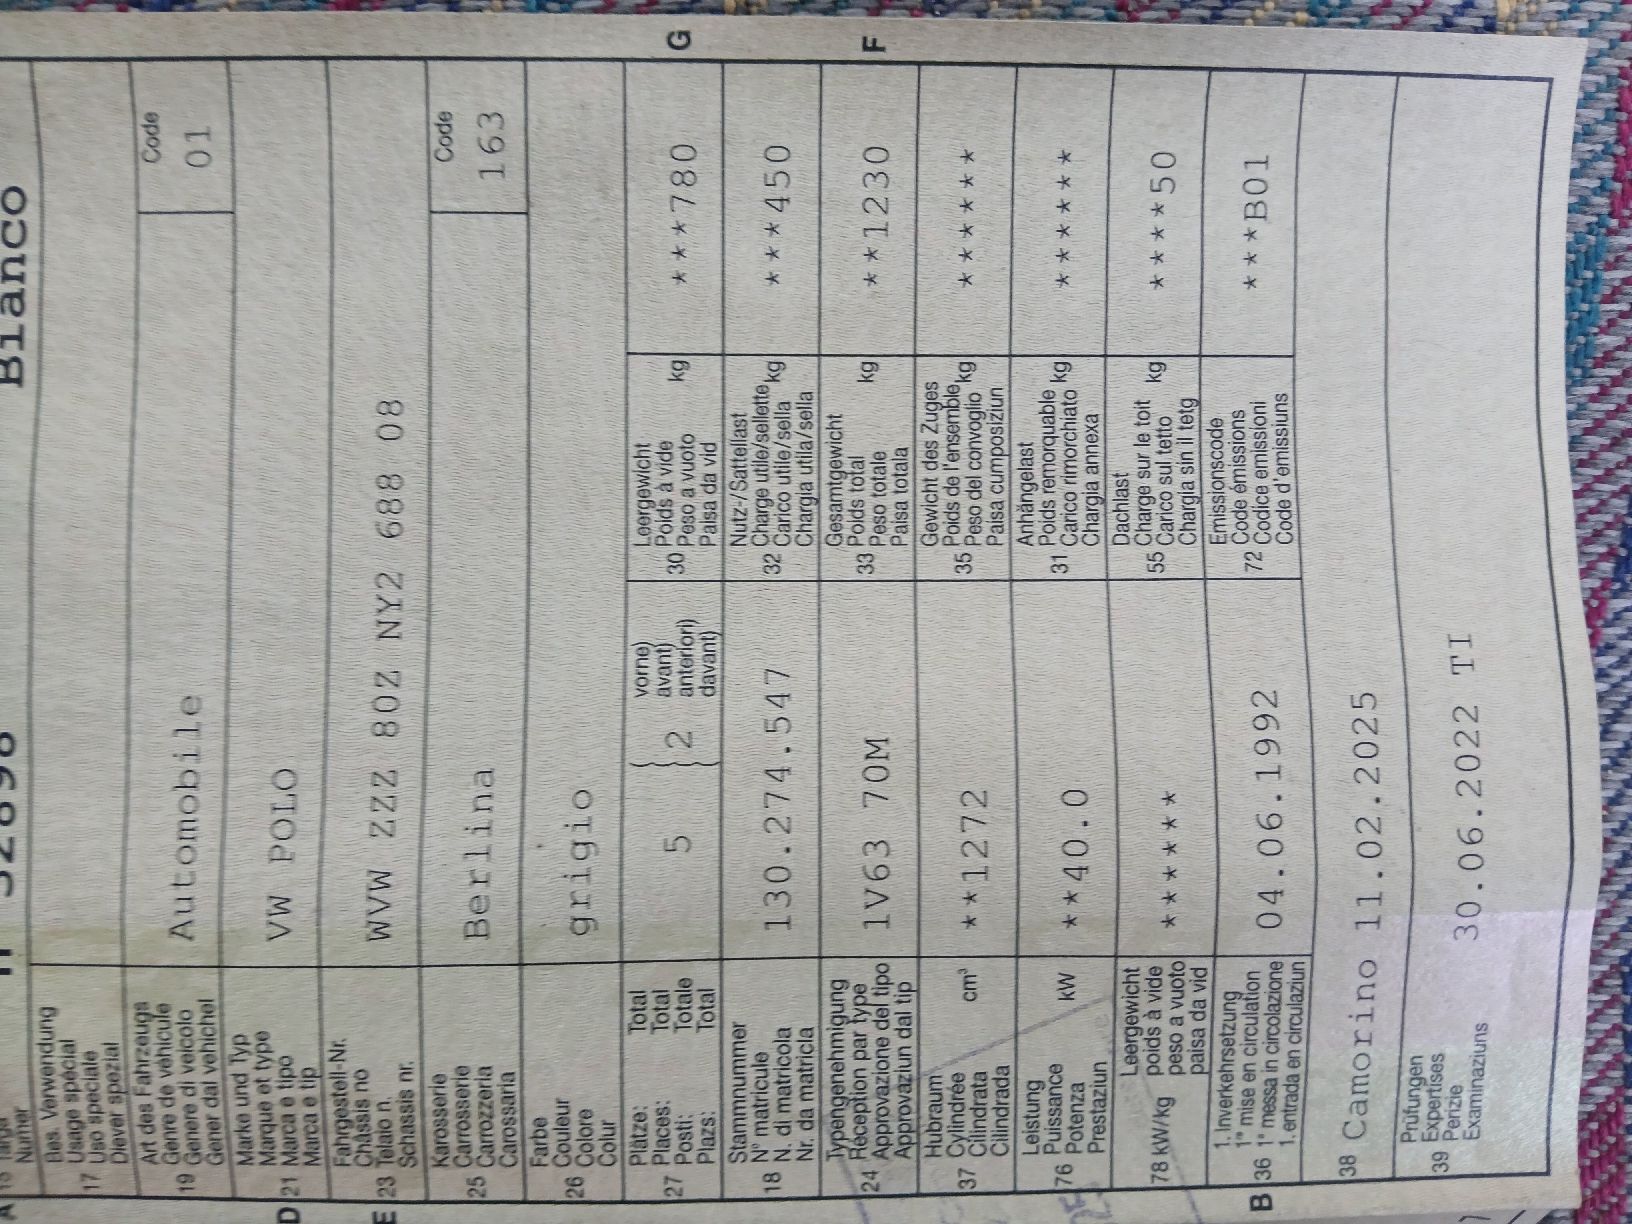 Bianco
Numer
Bes. Verwendung
Usage spécial
17 Uso speciale
Diever spezial
Art des Fahrzeugs
Genre de véhicule
19 Genere di veicolo
Gener dal vehichel
Automobile
Code
01
Marke und Typ
Marque et type
D 21 Marca e tipo
Marca e tip
VW POLO
Fahrgestell-Nr.
Châssis no
E 23 Telaio n.
Schassis nr.
WVW ZZZ 80Z NY2 688 08
Karosserie
Carrosserie
25 Carrozzeria
Carossaria
Berlina
Code
163
Farbe
Couleur
26 Colore
Colur
grigio
Plätze: Total
Places: Total
27 Posti: Totale
Plazs: Total
5
2
vorne)
avant)
anteriori)
davant)
Leergewicht
Poids à vide
30 Peso a vuoto kg
Paisa da vid
***780
G
Stammnummer
N° matricule
18 N. di matricola
Nr. da matricla
130.274.547
Nutz-/Sattellast
Charge utile/sellette
32 Carico utile/sella kg
Chargia utila/sella
***450
Typengenehmigung
Réception par type
24 Approvazione del tipo
Approvaziun dal tip
1V63 70M
Gesamtgewicht
Poids total
33 Peso totale kg
Paisa totala
**1230
F
Hubraum
Cylindrée
37 Cilindrata cm³
Cilindrada
**1272
Gewicht des Zuges
Poids de l'ensemble
35 Peso del convoglio kg
Paisa cumposiziun
*******
Leistung
Puissance
76 Potenza kW
Prestaziun
**40.0
Anhängelast
Poids remorquable
31 Carico rimorchiato kg
Chargia annexa
*******
78 kW/kg
Leergewicht
poids à vide
peso a vuoto
paisa da vid
******
Dachlast
Charge sur le toit
55 Carico sul tetto kg
Chargia sin il tetg
*****50
1. Inverkehrsetzung
1re mise en circulation
B 36 1a messa in circolazione
1. entrada en circulaziun
04.06.1992
Emissionscode
Code émissions
72 Codice emissioni
Code d'emissiuns
***B01
38 Camorino 11.02.2025
Prüfungen
Expertises
39 Perizie
Examinaziuns
30.06.2022 TI